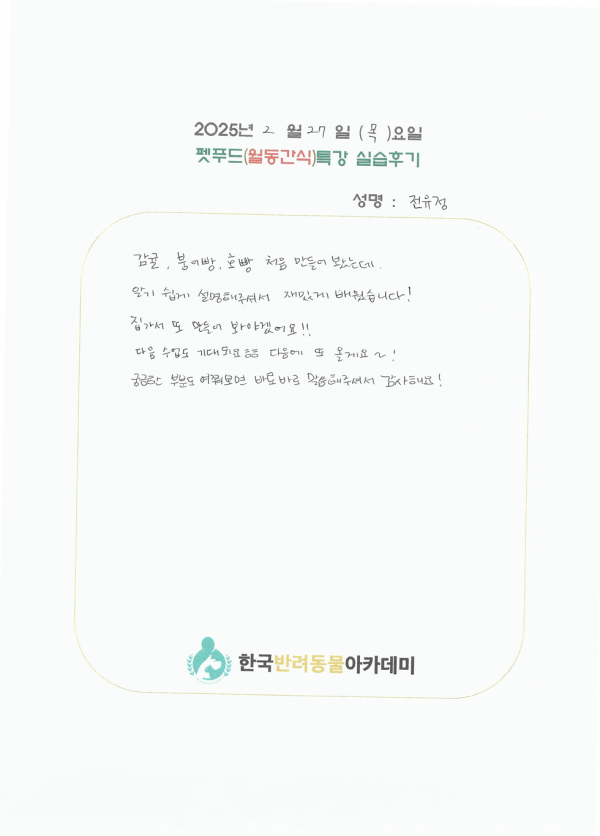 2025년 2 월 27 일 (목)요일
펫푸드(월동간식)특강 실습후기
성명 : 전유정
감귤, 붕어빵, 호빵 처음 만들어 봤는데.
알기 쉽게 설명해주셔서 재밌게 배웠습니다!
집가서 또 만들어 봐야겠어요!!
다음 수업도 기대돼요ㅎㅎ 다음에 또 올게요~!
궁금한 부분도 여쭤보면 바로바로 말씀해주셔서 감사해요!
한국반려동물아카데미